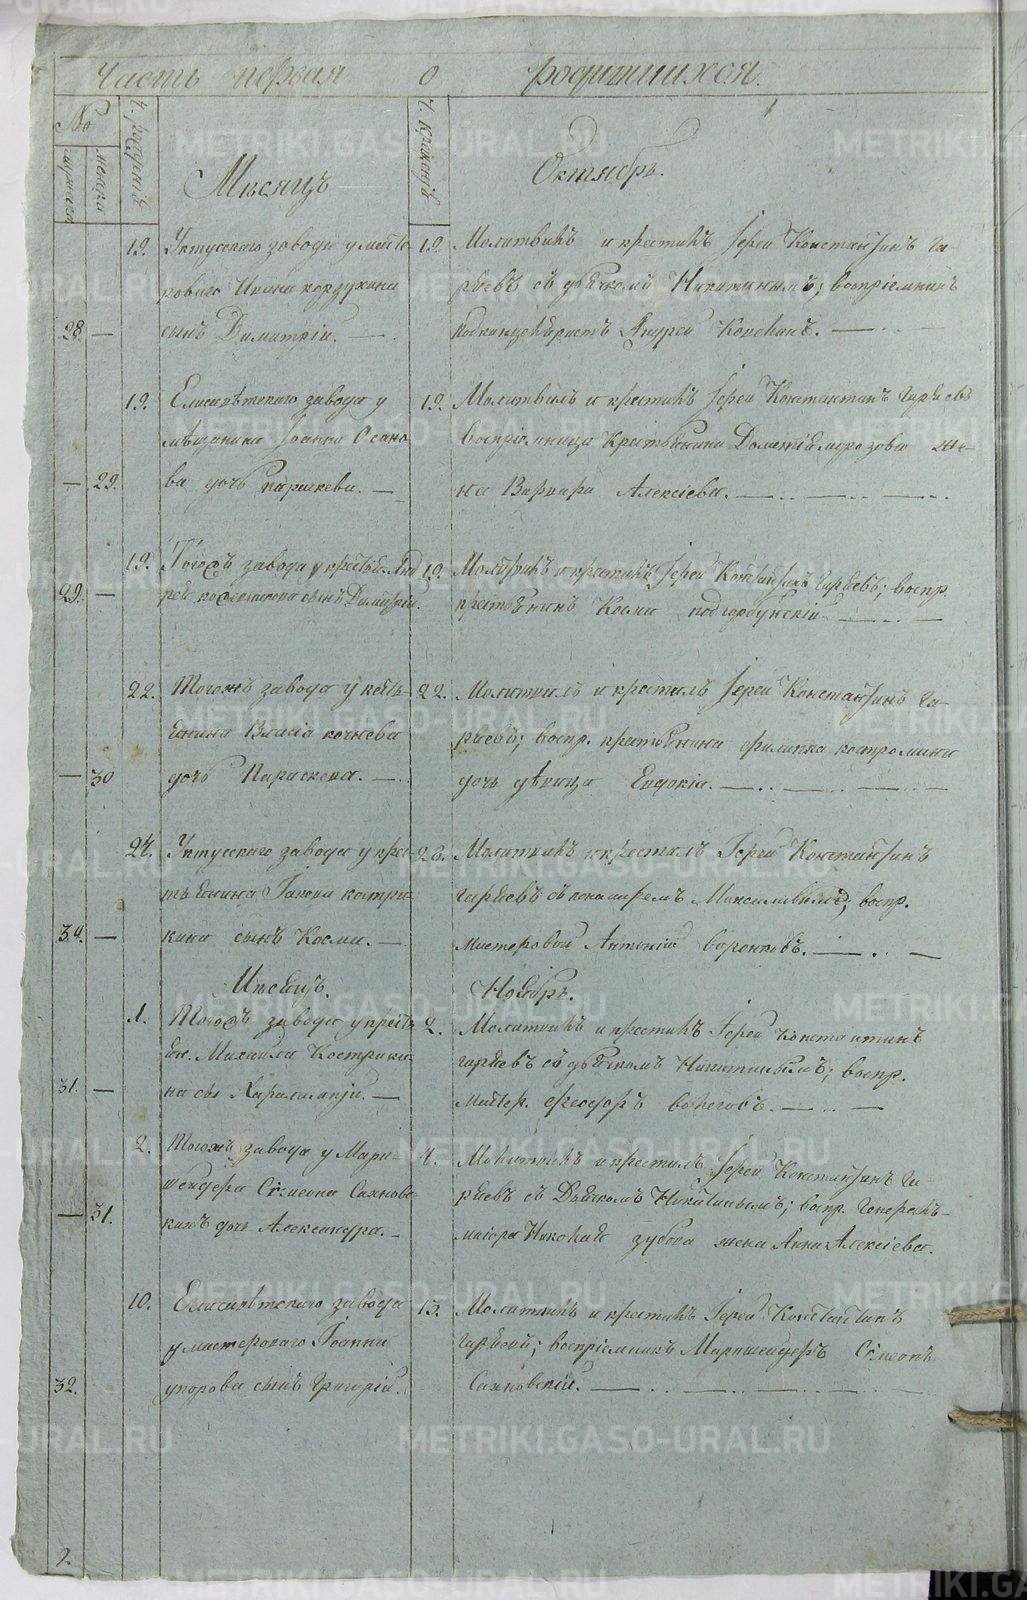 Часть первая о родившихся.
№
мужеска
женска
Ч. рожденiя
Ч. крещенiя
Мѣсяцъ
Октябрь.
28. — 19. Уктусскаго завода у масте-
роваго Ивана
сынъ Димитрiй. —
19. Молитвилъ и крестилъ Iерей Константинъ Га-
ряевъ съ дьячкомъ Никитинымъ; воспрiемникъ
Андрей
— 29. 19. Елисавѣтскаго завода у
Iоанна Осано-
ва дочь Параскева. —
19. Молитвилъ и крестилъ Iерей Константинъ Гаряевъ
воспрiемница Крестьянина Морозова же-
на Варвара Алексiева. —
29. — 19. Тогожъ завода у крестьян. Анд
рея сынъ Димитрiй.
19. Молитвилъ и крестилъ Iерей Константинъ Гаряевъ; воспр.
крестьянинъ Косма
— 30 22. Тогожъ завода у кресть-
янина Власiа Кочнева
дочь Параскева. —
22. Молитвилъ и крестилъ Iерей Константинъ Га-
ряевъ; воспр. крестьянина Филиппа Костромина
дочь дѣвица Евдокiа. —
30. — 24. Уктусскаго завода у крес-
тьянина Iакова Костри-
кина сынъ Косма. —
28. Молитвилъ и крестилъ Iерей Константинъ
Гаряевъ съ пономаремъ воспр.
Мастеровой Антонiй Воронковъ. —
Мѣсяцъ.
Ноябрь.
31. — 1. Тогожъ завода у кресть
ян. Михаила Кострики-
на сы Харалампiй. —
2. Молитвилъ и крестилъ Iерей Константинъ
Гаряевъ съ дьячкомъ Никитинымъ; воспр.
Мастер. Феодоръ —
— 31. 2. Тогожъ завода у Марк-
шейдера Сѵмеона Сахновс-
каго дочь Александра. —
4. Молитвилъ и крестилъ Iерей Константинъ Га-
ряевъ съ Дьячкомъ Никитинымъ; воспр. Генералъ-
маiора Николая Зубова жена Анна Алексiева.
32. 10. Елисавѣтскаго завода
у мастероваго Iоанна
Упорова сынъ Григорiй.
13. Молитвилъ и крестилъ Iерей Константинъ
Гаряевъ; воспрiемникъ Маркшейдеръ Сѵмеонъ
Сахновскiй. —
METRIKI.GASO-URAL.RU